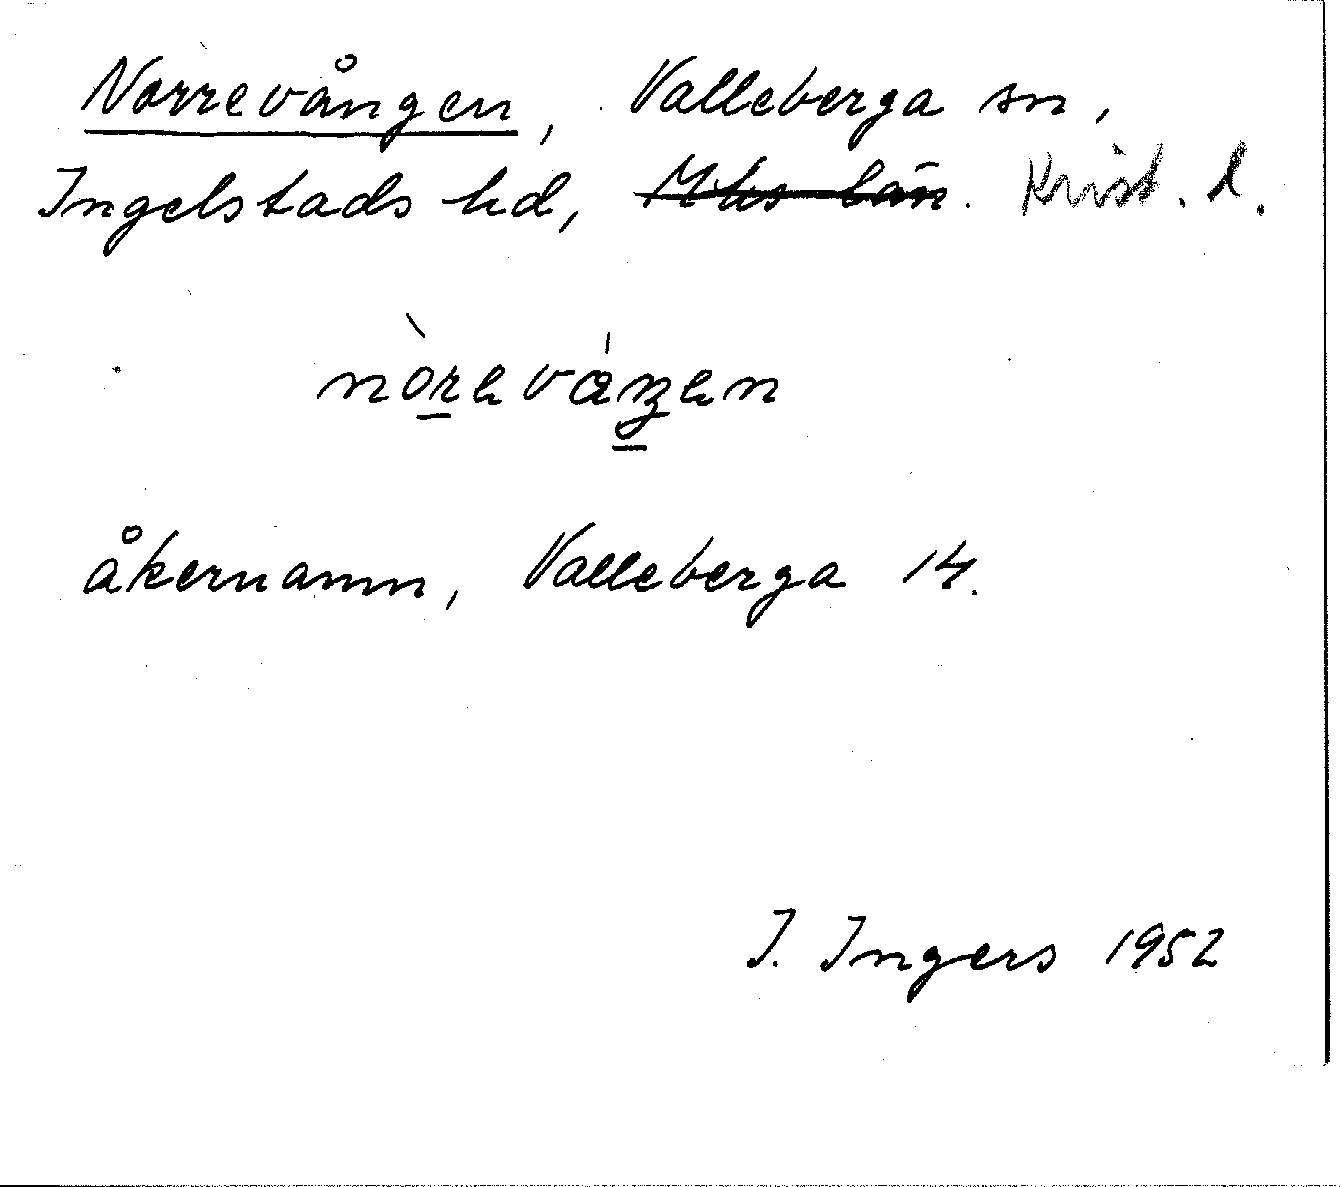 Norrevången, Valleberga sn,
Ingelstads hd, Mhs län. Krist. l.
nòreváŋen
åkernamn, Valleberga 14.
I. Ingers 1952